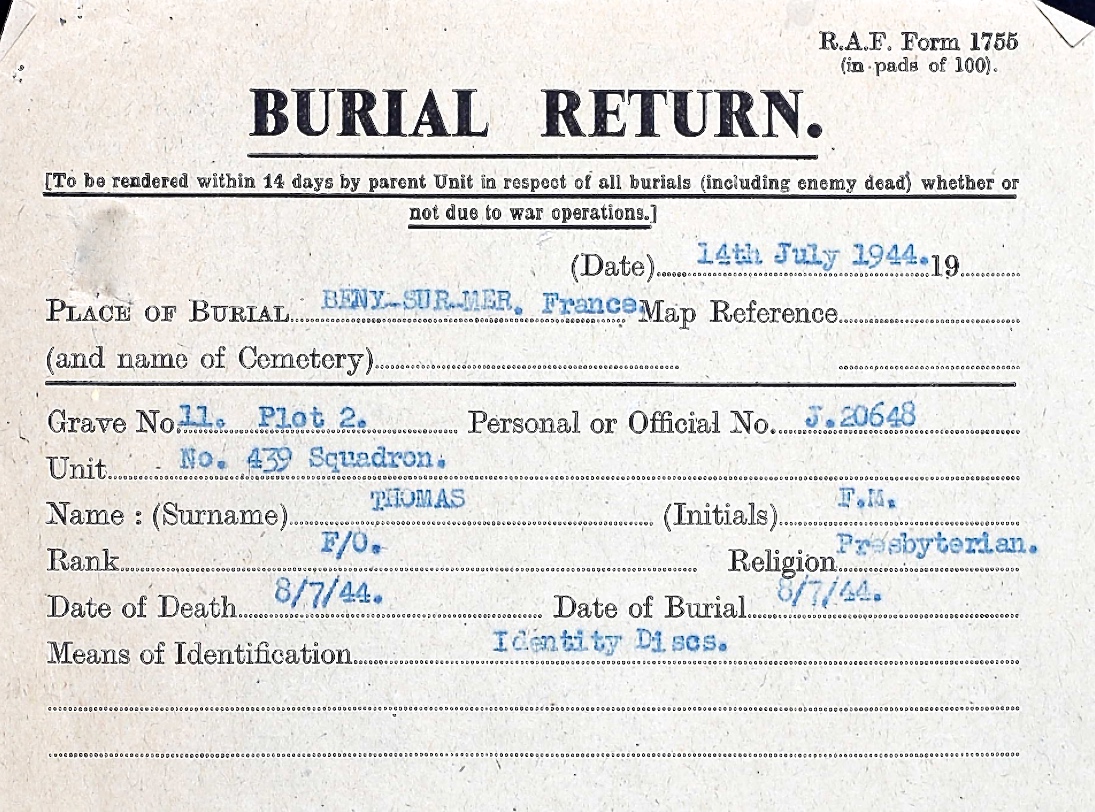 R.A.F. Form 1755
(in pads of 100).
BURIAL RETURN.
[To be rendered within 14 days by parent Unit in respect of all burials (including enemy dead) whether or
not due to war operations.]
(Date) 14th July 1944. 19
PLACE OF BURIAL BENY-SUR-MER, France. Map Reference
(and name of Cemetery)
Grave No. 11. Plot 2. Personal or Official No. J.20648
Unit No. 439 Squadron.
Name : (Surname) THOMAS (Initials) F.M.
Rank F/O. Religion Presbyterian.
Date of Death 8/7/44. Date of Burial 8/7/44.
Means of Identification Identity Discs.